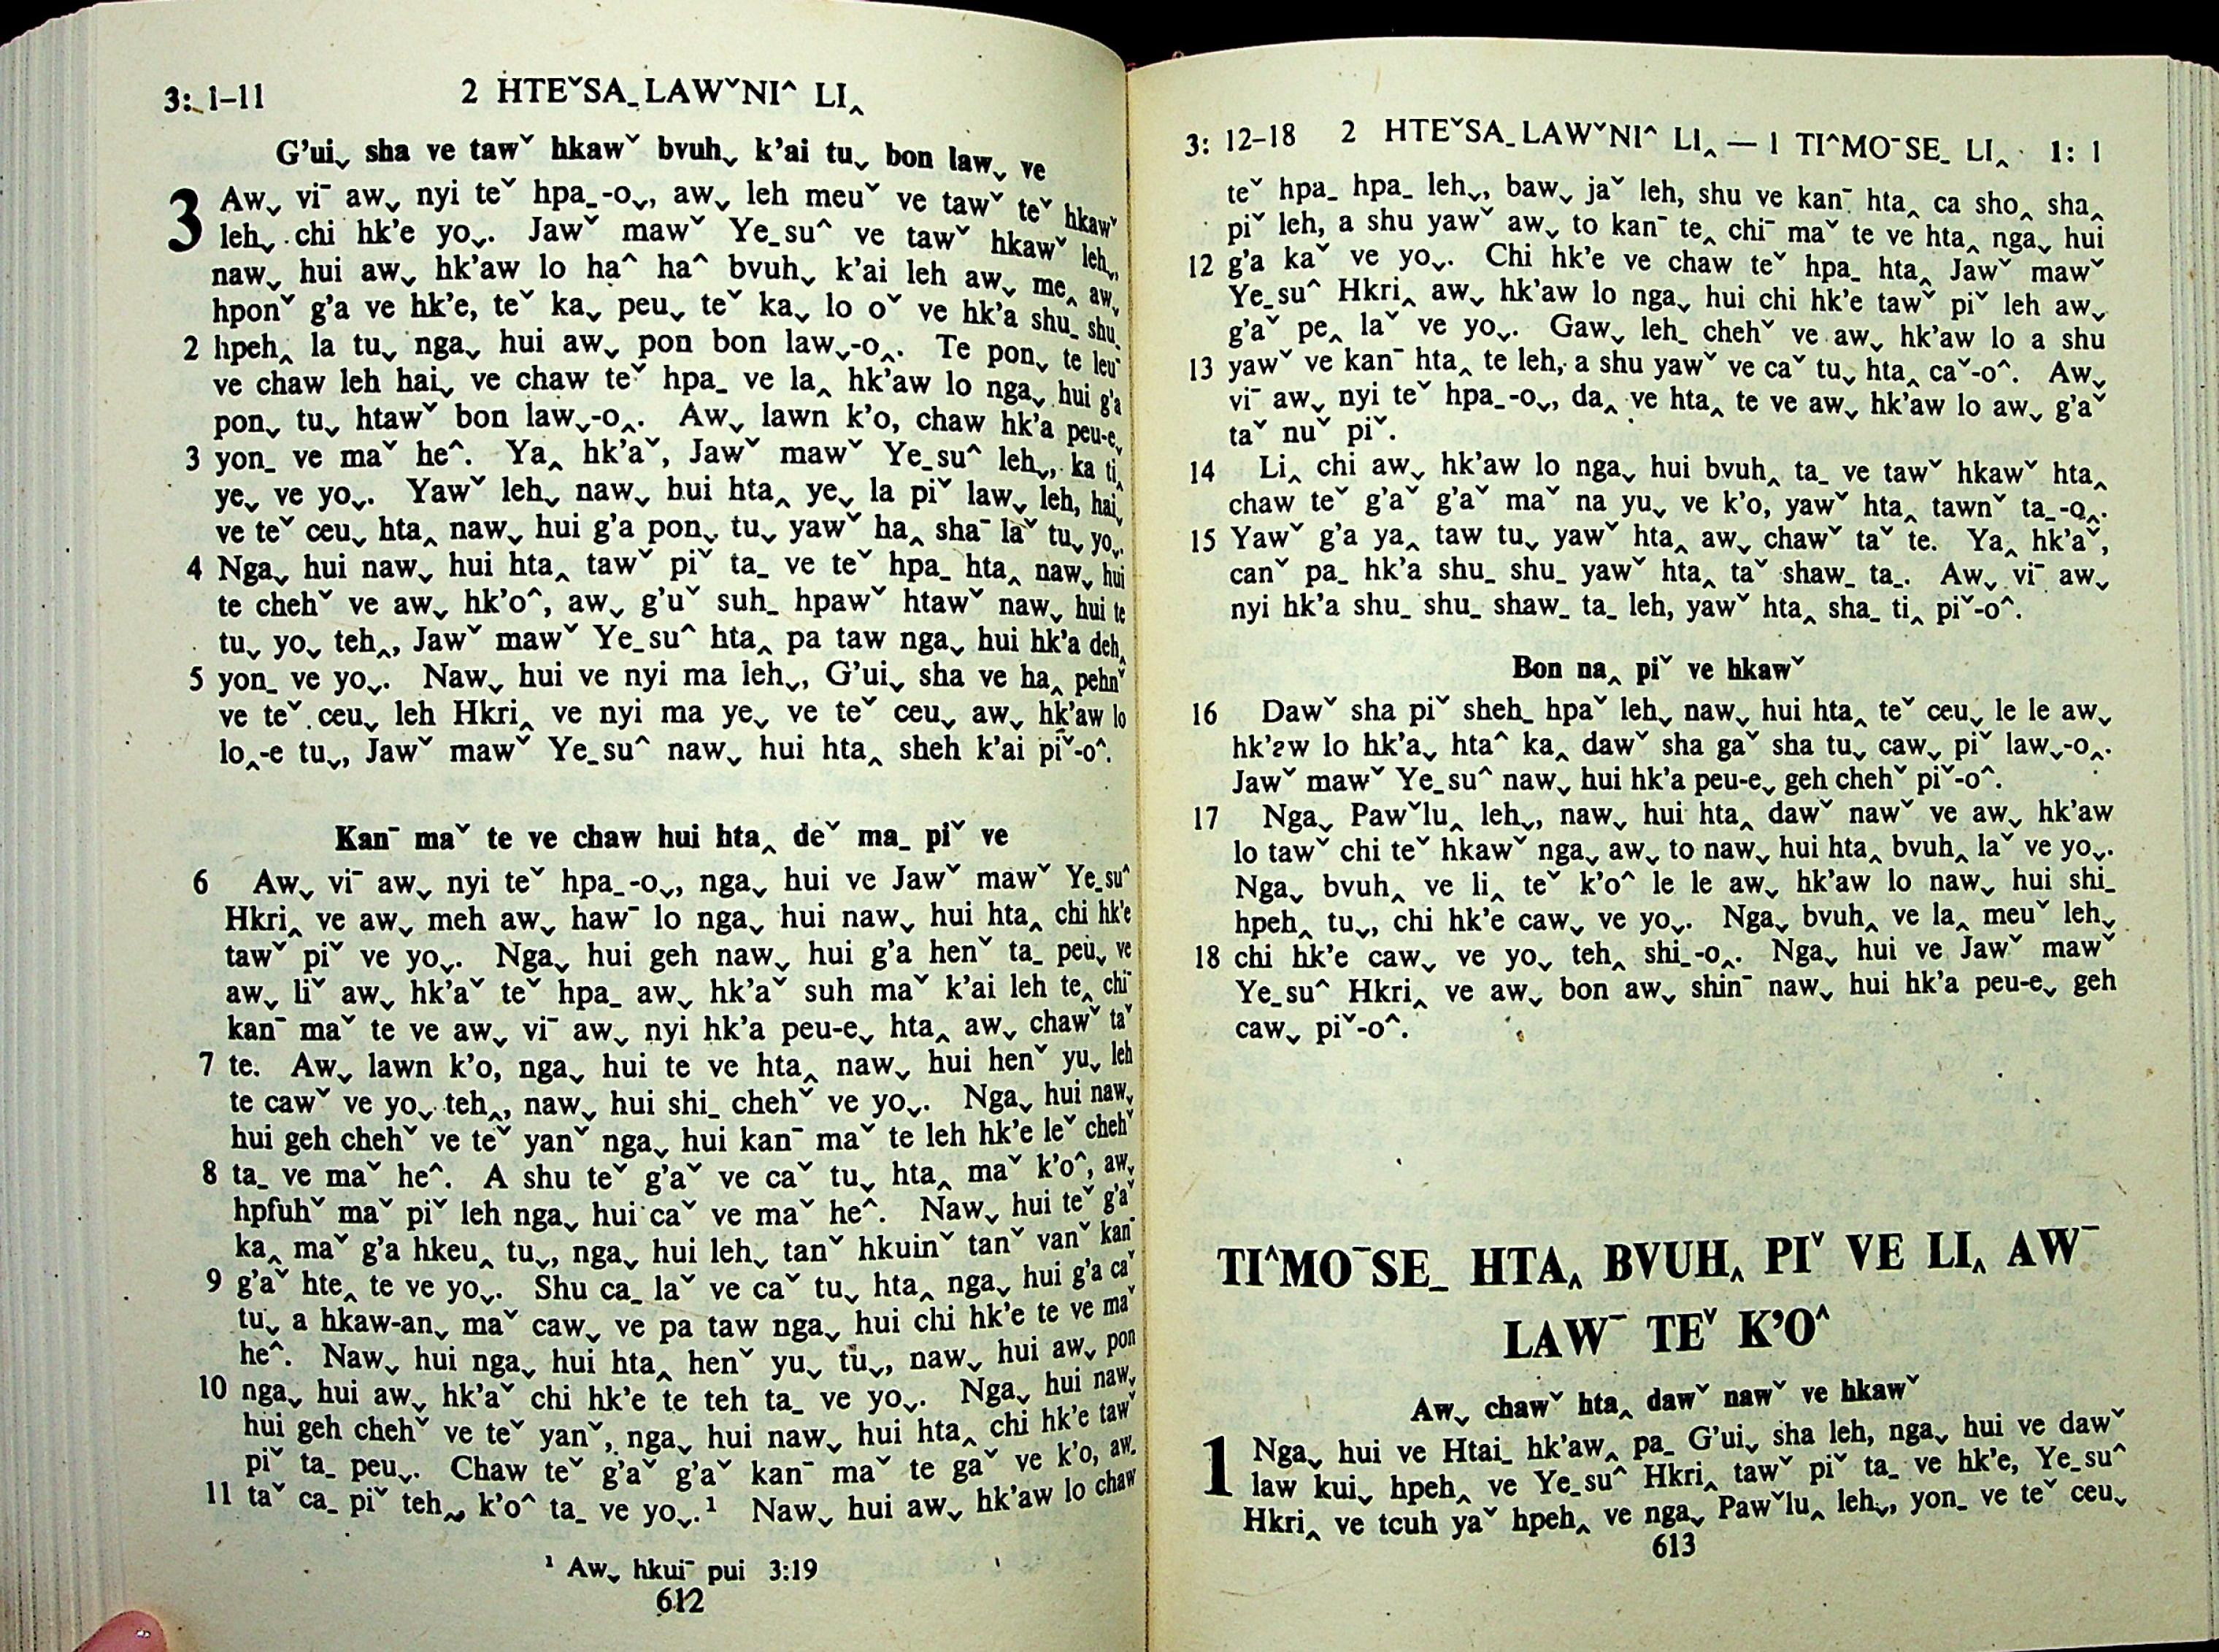 3: 1–11 2 HTEˇSAˍLAWˇNI^ LI‸
G'uiˬ sha ve tawˇ hkawˇ bvuhˬ k'ai tuˬ bon lawˬ ve
3 Awˬ viˉ awˬ nyi teˇ hpaˍ-oˬ, awˬ leh meuˇ ve tawˇ teˇ hkawˇ
lehˬ chi hk'e yoˬ. Jawˇ mawˇ Yeˍsu^ ve tawˇ hkawˇ lehˬ,
nawˬ hui awˬ hk'aw lo ha^ ha^ bvuhˬ k'ai leh awˬ me‸ awˬ
hponˇ g'a ve hk'e, teˇ kaˬ peuˬ teˇ kaˬ lo oˇ ve hk'a shuˍ shuˍ
2 hpeh‸ la tuˬ ngaˬ hui awˬ pon bon lawˬ-o‸. Te ponˬ te leuˉ
ve chaw leh haiˬ ve chaw teˇ hpaˍ ve la‸ hk'aw lo ngaˬ hui g'a
ponˬ tuˬ htawˇ bon lawˬ-o‸. Awˬ lawn k'o, chaw hk'a peu-eˬ
3 yonˍ ve maˇ he^. Ya‸ hk'aˇ, Jawˇ mawˇ Yeˍsu^ lehˬ, ka ti‸
yeˬ ve yoˬ. Yawˇ lehˬ nawˬ hui hta‸ yeˬ la piˇ lawˬ leh, haiˬ
ve teˇ ceuˬ hta‸ nawˬ hui g'a ponˬ tuˬ yawˇ ha‸ shaˉ laˇ tuˬ yoˬ.
4 Ngaˬ hui nawˬ hui hta‸ tawˇ piˇ taˍ ve teˇ hpaˍ hta‸ nawˬ hui
te chehˇ ve awˬ hk'o^, awˬ g'uˇ suhˍ hpawˇ htawˇ nawˬ hui te
tuˬ yoˬ teh‸, Jawˇ mawˇ Yeˍsu^ hta‸ pa taw ngaˬ hui hk'a deh‸
5 yonˍ ve yoˬ. Nawˬ hui ve nyi ma lehˬ, G'uiˬ sha ve ha‸ pehnˇ
ve teˇ ceuˬ leh Hkri‸ ve nyi ma yeˬ ve teˇ ceuˬ awˬ hk'aw lo
lo‸-e tuˬ, Jawˇ mawˇ Yeˍsu^ nawˬ hui hta‸ sheh k'ai piˇ-o^.
Kanˉ maˇ te ve chaw hui hta‸ deˇ maˍ piˇ ve
6 Awˬ viˉ awˬ nyi teˇ hpaˍ-oˬ, ngaˬ hui ve Jawˇ mawˇ Yeˍsu^
Hkri‸ ve awˬ meh awˬ hawˉ lo ngaˬ hui nawˬ hui hta‸ chi hk'e
tawˇ piˇ ve yoˬ. Ngaˬ hui geh nawˬ hui g'a henˇ taˍ peuˬ ve
awˬ liˇ awˬ hk'aˇ teˇ hpaˍ awˬ hk'aˇ suh maˇ k'ai leh te‸ chiˉ
kanˉ maˇ te ve awˬ viˉ awˬ nyi hk'a peu-eˬ hta‸ awˬ chawˇ taˇ
7 te. Awˬ lawn k'o, ngaˬ hui te ve hta‸ nawˬ hui henˇ yuˬ leh
te cawˇ ve yoˬ teh‸, nawˬ hui shiˍ chehˇ ve yoˬ. Ngaˬ hui nawˬ
hui geh chehˇ ve teˇ yanˇ ngaˬ hui kanˉ maˇ te leh hk'e leˇ chehˇ
8 taˍ ve maˇ he^. A shu teˇ g'aˇ ve caˇ tuˬ hta‸ maˇ k'o^, awˬ
hpfuhˇ maˇ piˇ leh ngaˬ hui caˇ ve maˇ he^. Nawˬ hui teˇ g'aˇ
ka‸ maˇ g'a hkeu‸ tuˬ, ngaˬ hui lehˬ tanˇ hkuinˇ tanˇ vanˇ kanˉ
9 g'aˇ hte‸ te ve yoˬ. Shu caˍ laˇ ve caˇ tuˬ hta‸ ngaˬ hui g'a caˇ
tuˬ a hkaw-anˬ maˇ cawˬ ve pa taw ngaˬ hui chi hk'e te ve maˇ
he^. Nawˬ hui ngaˬ hui hta‸ henˇ yuˬ tuˬ, nawˬ hui awˬ pon
10 ngaˬ hui awˬ hk'aˇ chi hk'e te teh taˍ ve yoˬ. Ngaˬ hui nawˬ
hui geh chehˇ ve teˇ yanˇ, ngaˬ hui nawˬ hui hta‸ chi hk'e tawˇ
piˇ taˍ peuˬ. Chaw teˇ g'aˇ g'aˇ kanˉ maˇ te gaˇ ve k'o, awˬ
11 taˇ caˍ piˇ tehˬ k'o^ taˍ ve yoˬ.¹ Nawˬ hui awˬ hk'aw lo chaw
¹ Awˬ hkuiˉ pui 3:19
612
3: 12–18 2 HTEˇSAˍLAWˇNI^ LI‸ — 1 TI^MOˉSEˍ LI‸ 1: 1
teˇ hpaˍ hpaˍ lehˬ, bawˬ jaˇ leh, shu ve kanˉ hta‸ ca sho‸ sha‸
piˇ leh, a shu yawˇ awˬ to kanˉ te‸ chiˉ maˇ te ve hta‸ ngaˬ hui
12 g'a kaˇ ve yoˬ. Chi hk'e ve chaw teˇ hpaˍ hta‸ Jawˇ mawˇ
Yeˍsu^ Hkri‸ awˬ hk'aw lo ngaˬ hui chi hk'e tawˇ piˇ leh awˬ
g'aˇ pe‸ laˇ ve yoˬ. Gawˬ lehˍ chehˇ ve awˬ hk'aw lo a shu
13 yawˇ ve kanˉ hta‸ te leh, a shu yawˇ ve caˇ tuˬ hta‸ caˇ-o^. Awˬ
viˉ awˬ nyi teˇ hpaˍ-oˬ, da‸ ve hta‸ te ve awˬ hk'aw lo awˬ g'aˇ
taˇ nuˇ piˇ.
14 Li‸ chi awˬ hk'aw lo ngaˬ hui bvuh‸ taˍ ve tawˇ hkawˇ hta‸
chaw teˇ g'aˇ g'aˇ maˇ na yuˬ ve k'o, yawˇ hta‸ tawnˇ taˍ-o‸.
15 Yawˇ g'a ya‸ taw tuˬ yawˇ hta‸ awˬ chawˇ taˇ te. Ya‸ hk'aˇ,
canˇ paˍ hk'a shuˍ shuˍ yawˇ hta‸ taˇ shawˍ taˍ. Awˬ viˉ awˬ
nyi hk'a shuˍ shuˍ shawˍ taˍ leh, yawˇ hta‸ shaˍ ti‸ piˇ-o^.
Bon na‸ piˇ ve hkawˇ
16 Dawˇ sha piˇ shehˍ hpaˇ lehˬ nawˬ hui hta‸ teˇ ceuˬ le le awˬ
hk'aw lo hk'aˬ hta^ kaˬ dawˇ sha gaˇ sha tuˬ cawˬ piˇ lawˬ-o‸.
Jawˇ mawˇ Yeˍsu^ nawˬ hui hk'a peu-eˬ geh chehˇ piˇ-o^.
17 Ngaˬ Pawˇlu‸ lehˬ, nawˬ hui hta‸ dawˇ nawˇ ve awˬ hk'aw
lo tawˇ chi teˇ hkawˇ ngaˬ awˬ to nawˬ hui hta‸ bvuh‸ laˇ ve yoˬ.
Ngaˬ bvuh‸ ve li‸ teˇ k'o^ le le awˬ hk'aw lo nawˬ hui shiˍ
hpeh‸ tuˬ, chi hk'e cawˬ ve yoˬ. Ngaˬ bvuh‸ ve la‸ meuˇ lehˬ
18 chi hk'e cawˬ ve yoˬ teh‸ shiˍ-o‸. Ngaˬ hui ve Jawˇ mawˇ
Yeˍsu^ Hkri‸ ve awˬ bon awˬ shinˉ nawˬ hui hk'a peu-eˬ geh
cawˬ piˇ-o^.
TI^MOˉSEˍ HTA‸ BVUH‸ PIˇ VE LI‸ AWˉ
LAWˉ TEˇ K'O^
Awˬ chawˇ hta‸ dawˇ nawˇ ve hkawˇ
1 Ngaˬ hui ve Htaiˍ hk'aw‸ paˍ G'uiˬ sha leh, ngaˬ hui ve dawˇ
law kuiˬ hpeh‸ ve Yeˍsu^ Hkri‸ tawˇ piˇ taˍ ve hk'e, Yeˍsu^
Hkri‸ ve tcuh yaˇ hpeh‸ ve ngaˬ Pawˇlu‸ lehˬ, yonˍ ve teˇ ceuˬ
613